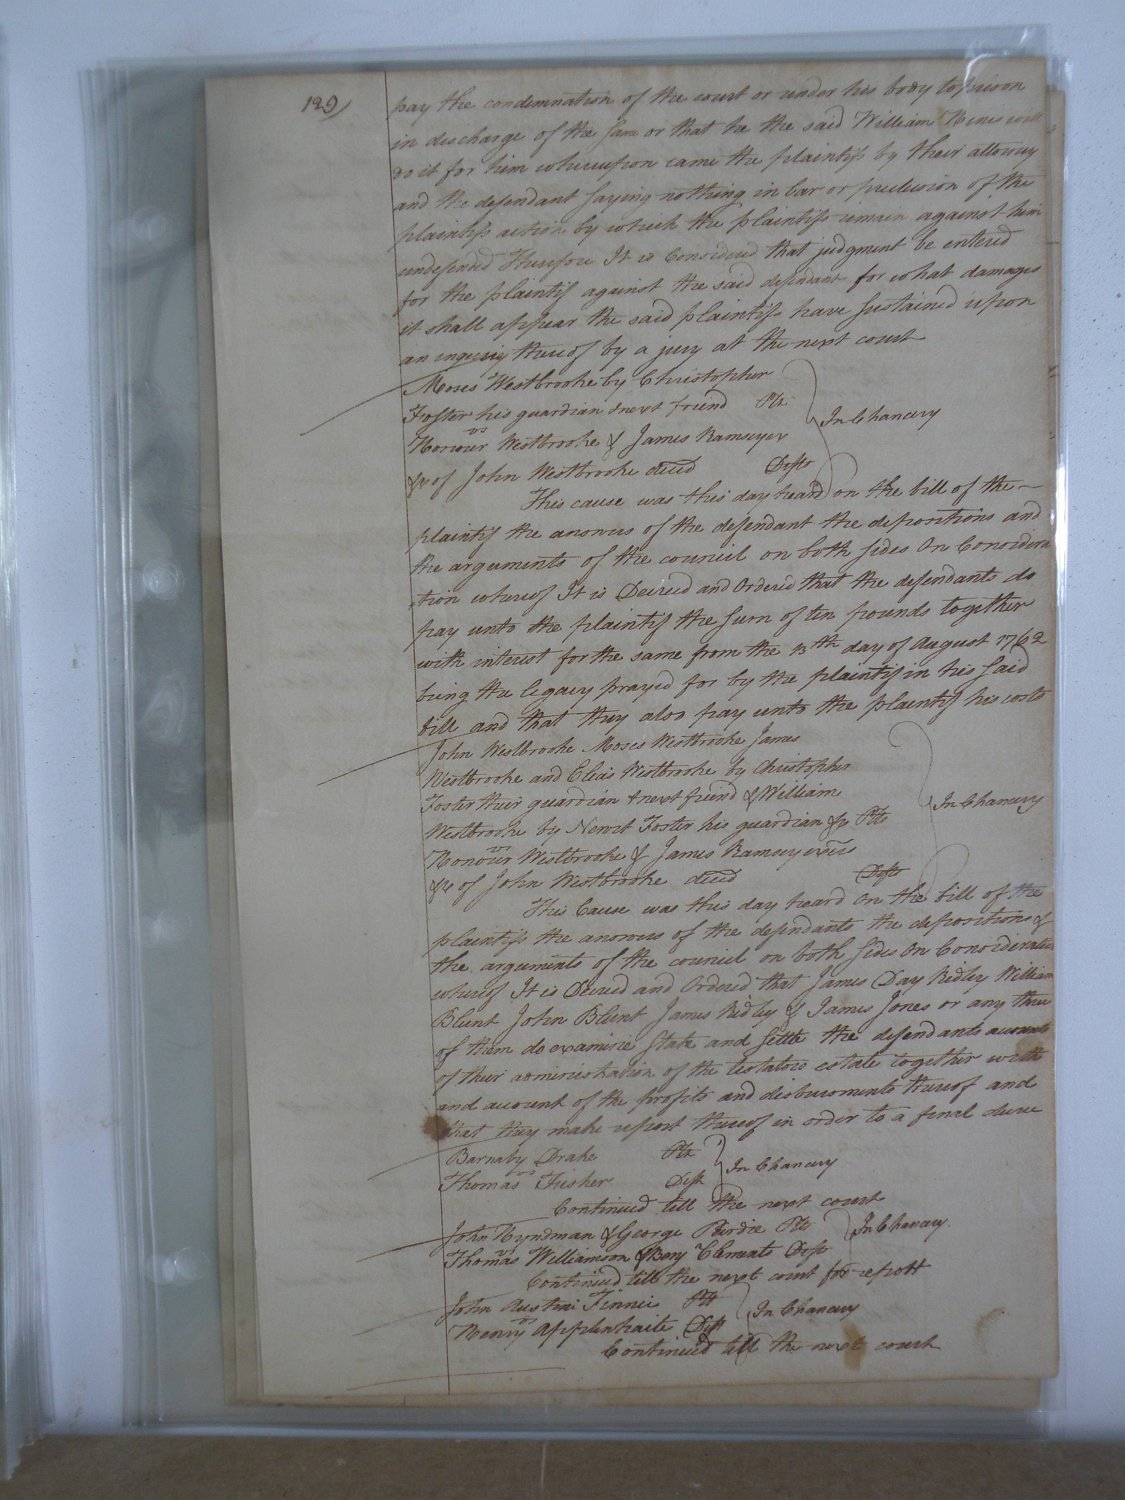 129)
pay the condemnation of the court or under his body to prison
in discharge of the same or that he the said William Hines will
do it for him whereupon came the plaintifs by their attorney
and the defendant saying nothing in bar or preclusion of the
plaintifs action by which the plaintifs remain against him
undefended Therefore It is Considered that judgment be entered
for the plaintifs against the said defendant for what damages
it shall appear the said plaintifs have sustained upon
an inquiry thereof by a jury at the next court
Moses Westbrooke by Christopher
Foster his guardian & next friend Plt
vs In Chancery
Honour Westbrooke & James Ramsey exr
&c of John Westbrooke decd Defts
This cause was this day heard on the bill of the
plaintif the answers of the defendant the depositions and
the arguments of the council on both sides On Considera
tion whereof It is Decreed and Ordered that the defendants do
pay unto the plaintif the sum of ten pounds together
with interest for the same from the 13th day of August 1762
being the legacy prayed for by the plaintif in his said
bill and that they also pay unto the plaintif his costs
John Westbrooke Moses Westbrooke James
Westbrooke and Elias Westbrooke by Christopher
Foster their guardian & next friend & William
In Chancery
Westbrooke by Newit Foster his guardian &c Plts
vs
Honour Westbrooke & James Ramsey exrs
&c of John Westbrooke decd Defts
This Cause was this day heard On the bill of the
plaintifs the answers of the defendants the depositions &
the arguments of the council on both sides On Consideration
whereof It is Decreed and Ordered that James Day Ridley William
Blunt John Blunt James Ridley & James Jones or any three
of them do examine state and settle the defendants accounts
of their administration of the testators estate together with
and account of the profits and disbursments thereof and
that they make report thereof in order to a final decree
Barnaby Drake Plt
vs In Chancery
Thomas Fisher Deft
Continued till the next court
John Hyndman & George Purdie Plts
vs In Chancery
Thomas Williamson & Benj Clements Defts
Continued till the next court for report
John Austin Finnie Plt
vs In Chancery
Henry Applewhaite Deft
Continued till the next court